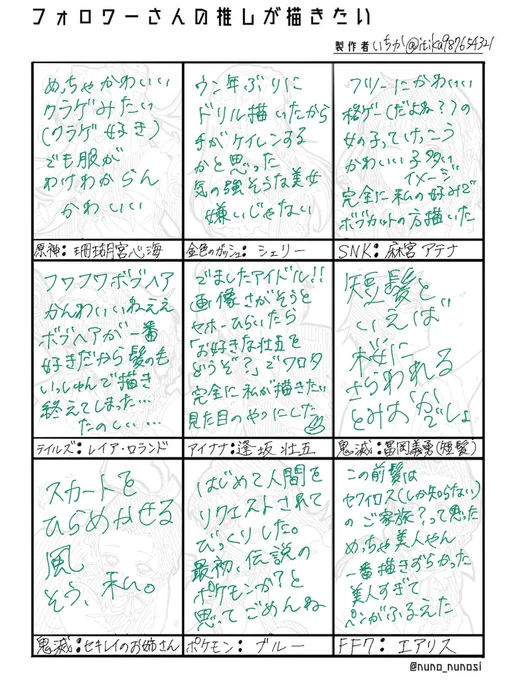 フォロワーさんの推しが描きたい
製作者 いちか@itika987654321
めっちゃかわいい
クラゲみたい
(クラゲ好き)
でも服が
わけわからん
かわいい
原神:珊瑚宮心海
ウン年ぶりに
ドリル描いたから
手がケイレンする
かと思った
気の強そうな美女
嫌いじゃない
金色のガッシュ:シェリー
フツーにかわいい
格ゲー(だよね?)の
女の子ってけっこう
かわいい子多い
イメージ
完全に私の好みで
ボブカットの方描いた
SNK:麻宮アテナ
フワフワボブヘア
かんわいいねえぇ
ボブヘアが一番
好きだから髪の毛
いっしゅんで描き
終えてしまった…
たのしい…
テイルズ:レイア・ロランド
でましたアイドル!!
画像さがそうと
セホーひらいたら
「お好きな壮五を
どうぞ?」でワロタ
完全に私が描きたい
見た目のやつにした
アイナナ:逢坂壮五
短髪と
いえば
桜に
さらわれる
とみおかでしょ
鬼滅:冨岡義勇(短髪)
スカートを
ひらめかせる
風
そう、私。
鬼滅:セキレイのお姉さん
はじめて人間を
リクエストされて
びっくりした。
最初、伝説の
ポケモンか?と
思ってごめんね
ポケモン:ブルー
この前髪は
セフィロス(しか知らない)
のご家族?って思った
めっちゃ美人やん
一番描きずらかった
美人すぎて
ペンがふるえた
FF7:エアリス
@nuno_nunosi